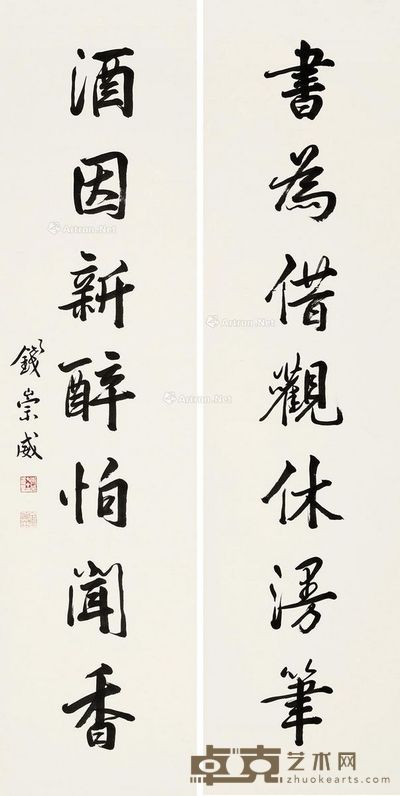 書為借觀休漫筆
酒因新醉怕聞香
錢崇威
Artron.Net
Artron.Net
Artron.Net
Artron.Net
卓克艺术网
zhuokearts.com